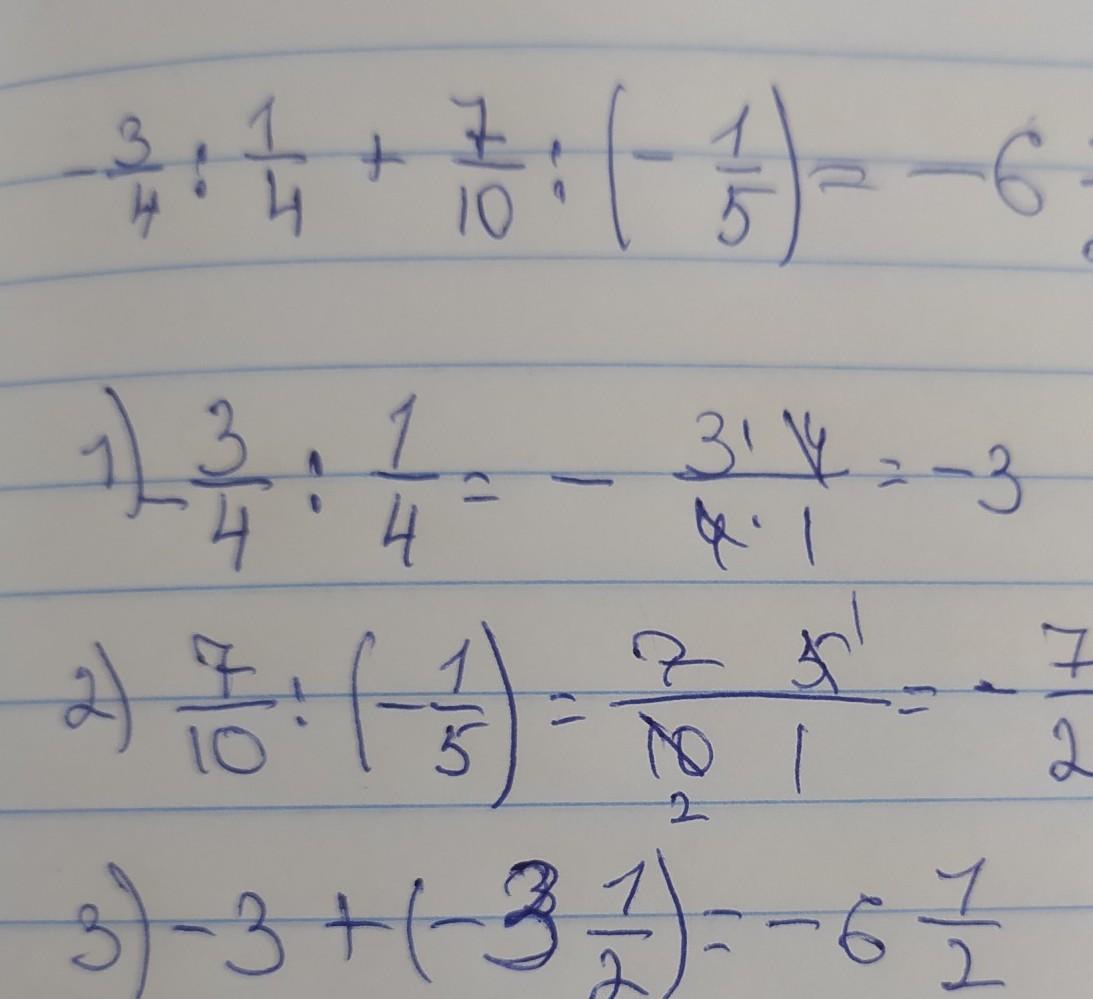 - 3/4 : 1/4 + 7/10 : (- 1/5) = - 6
1) - 3/4 : 1/4 = - 3 · 4 / 4 · 1 = - 3
2) 7/10 : (- 1/5) = 7 5 1 / 10 1 2 = - 7/2
3) - 3 + (- 3 1/2) = - 6 1/2